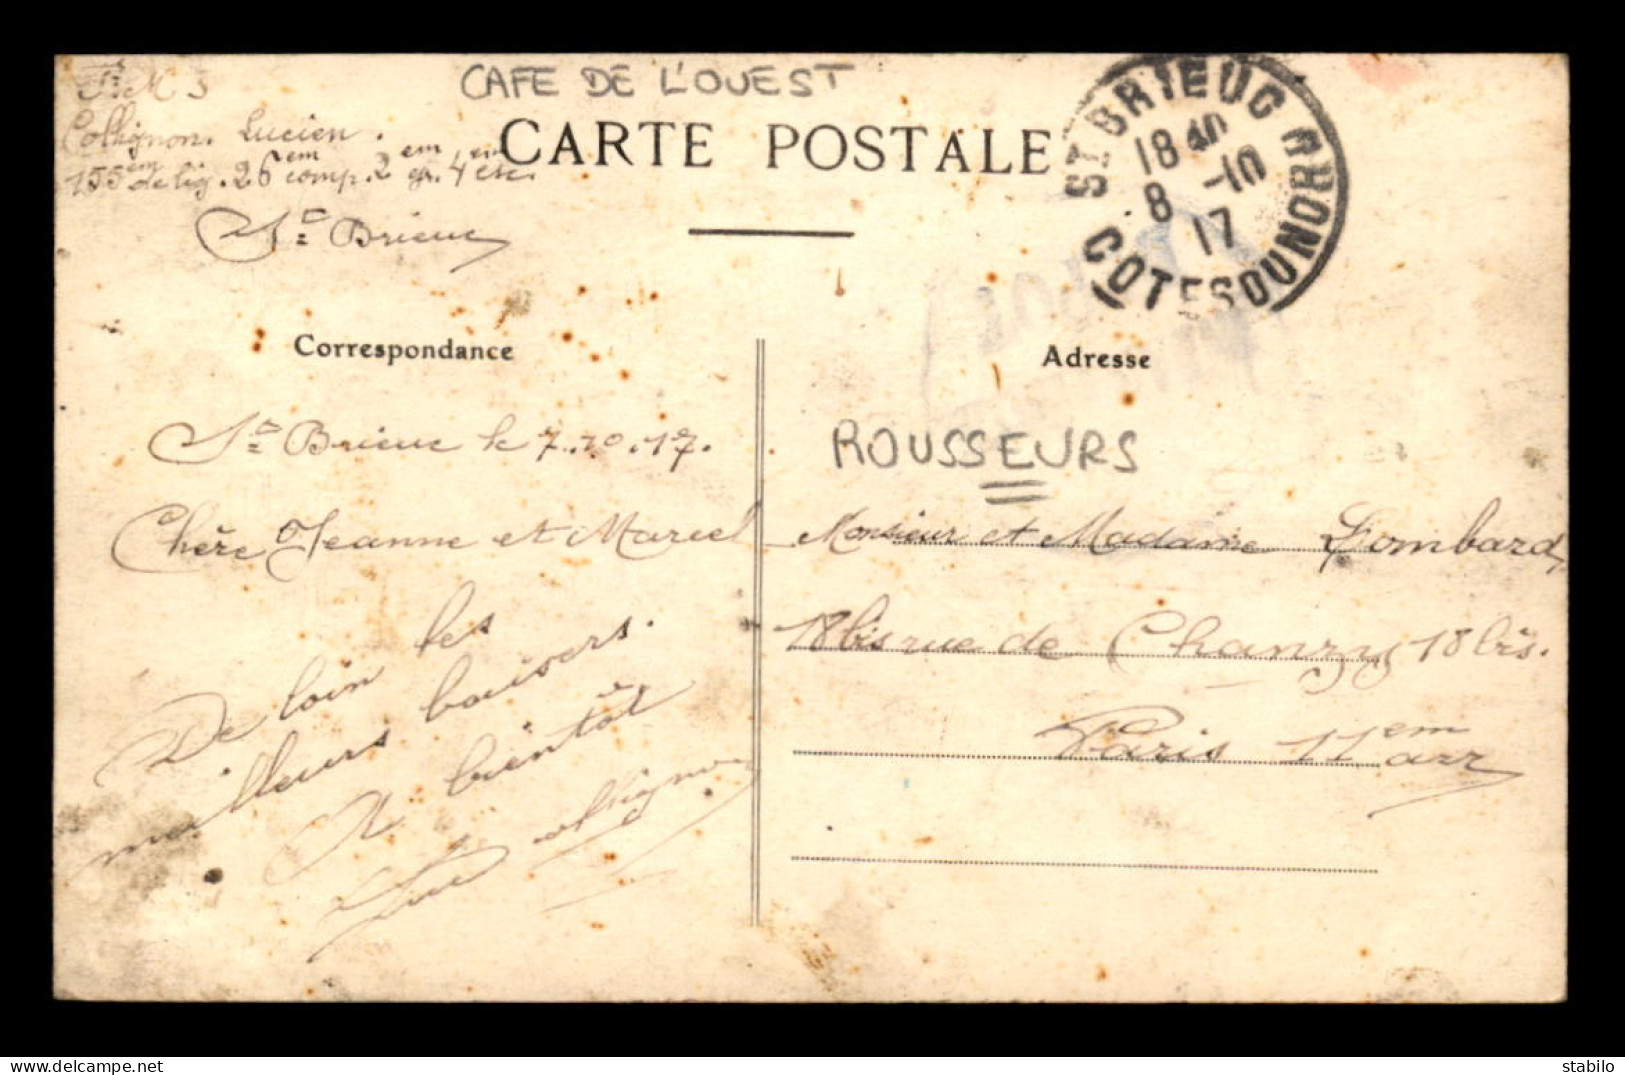 CAFE DE L'OUEST
Collignon. Lucien.
155em de lig. 26em comp. 2em gr. 4em esc.
St Brieuc
CARTE POSTALE
ST BRIEUC
18 40
8 -10
17
COTES DU NORD
Correspondance
Adresse
St Brieuc le 7.10.17.
Chère Jeanne et Marcel
De loin les
meilleurs baisers.
A bientôt
Collignon
ROUSSEURS
Monsieur et Madame Lombard
18bis rue de Chanzy 18 bis.
Paris 11em arr
delcampe.net
stobalux